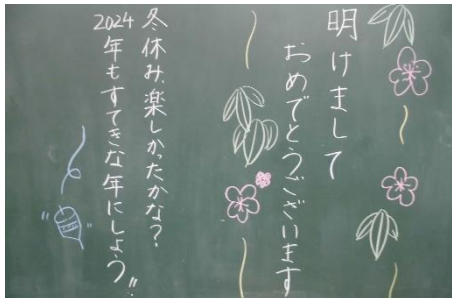 明けまして
おめでとうございます
冬休み、楽しかったかな？
2024年もすてきな年にしよう!!